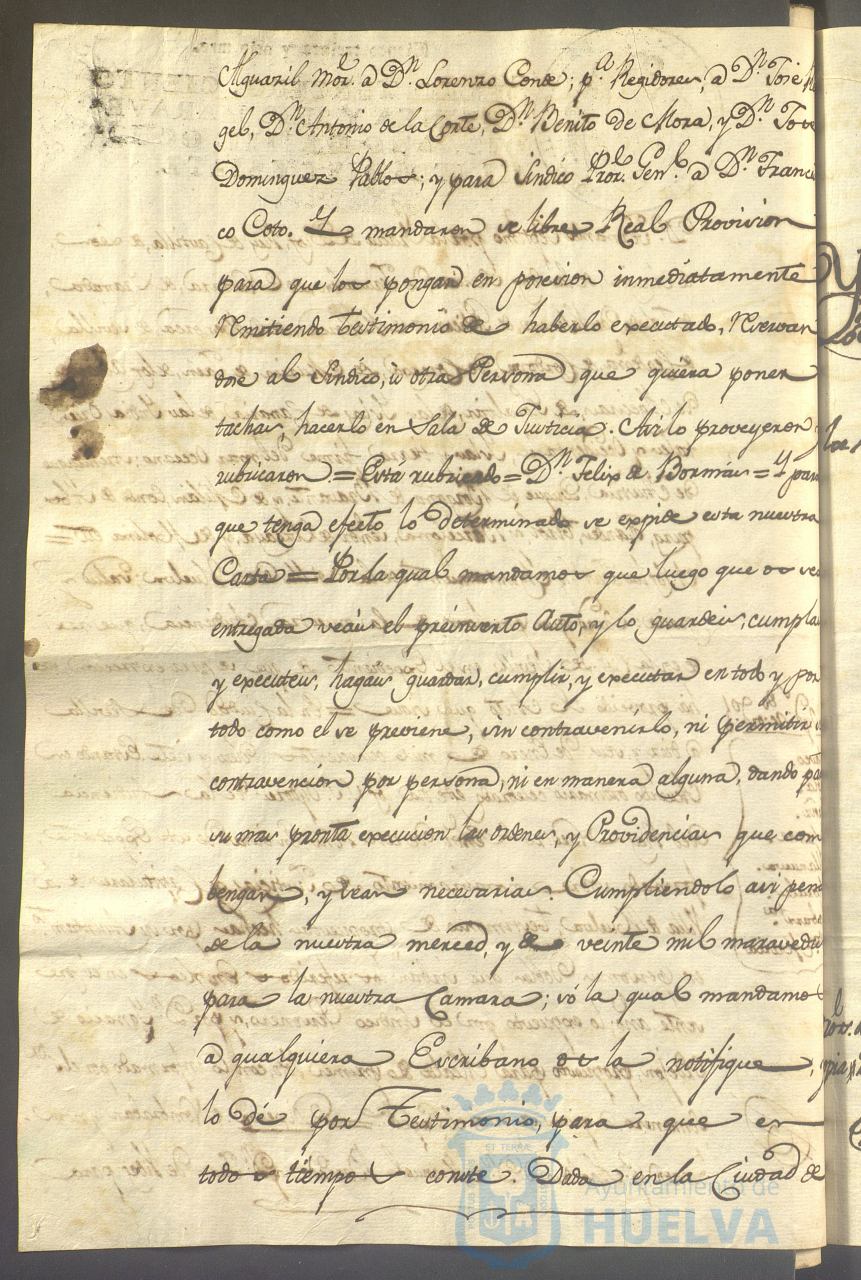 Alguazil Mor. a Dn. Lorenzo Conde; pa. Regidores, a Dn. José
gel, Dn. Antonio de la Corte, Dn. Benito de Mora, y Dn. Jose
Dominguez Pablos; y para Sindico Pror. Genl. a Dn. Francis
co Coto. Y mandaron se libre Real Provision
para que los pongan en posesion inmediatamente
Remitiendo testimonio de haberlo executado, Reservan
dose al Sindico, ù otra Persona que quiera poner
tachas, hacerlo en Sala de Justicia. Asi lo proveyeron
rubricaron = Está rubricado = Dn. Felix de Bormas = Y para
que tenga efecto lo determinado se expide esta nuestra
Carta = Por la qual mandamos que luego que os sea
entregada veais el preinserto Auto, y lo guardeis, cumpla
y executeis, hagais guardar, cumplir, y executar en todo y por
todo como el se previene, sin contravenirlo, ni permitir su
contravencion por persona, ni en manera alguna, dando pa
su mas pronta execucion las ordenes, y Providencias que com
bengan, y sean necesarias. Cumpliendolo asi pena
de la nuestra merced, y de veinte mil maravedis
para la nuestra Camara; só la qual mandamos
a qualquiera Escribano os la notifique,
lo dé por Testimonio, para que en
todo tiempo conste. Dada en la Ciudad de
Ayuntamiento de
HUELVA